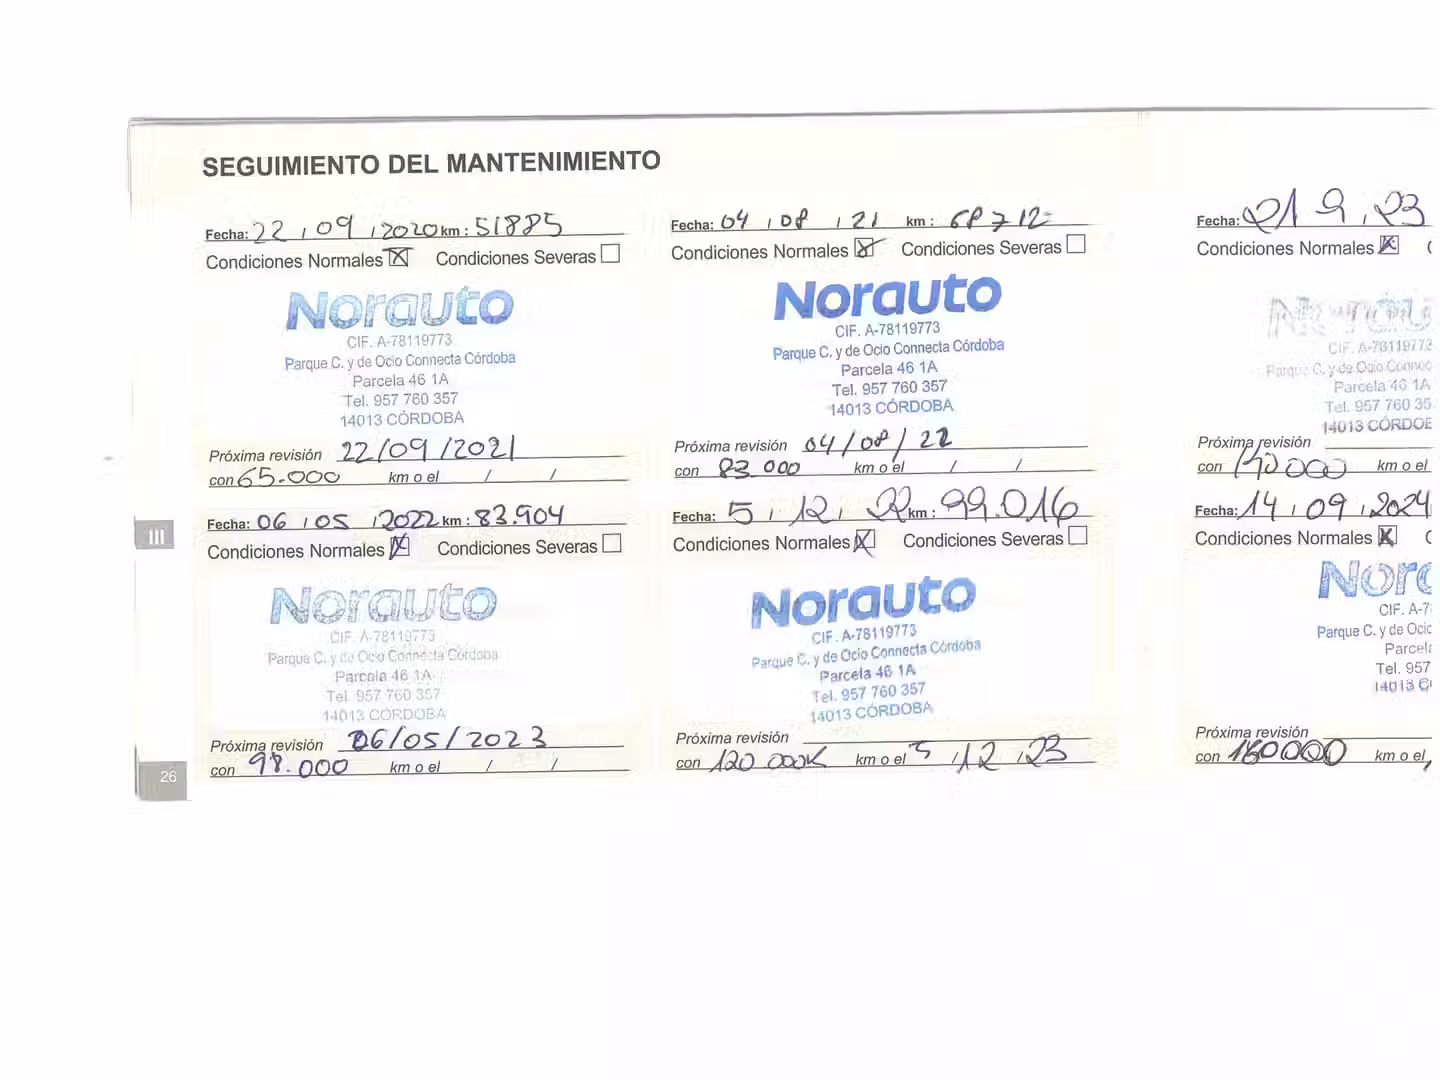 SEGUIMIENTO DEL MANTENIMIENTO
Fecha: 22 / 09 / 2020 km : 51885
Condiciones Normales Condiciones Severas
Norauto
CIF. A-78119773
Parque C. y de Ocio Connecta Córdoba
Parcela 46 1A
Tel. 957 760 357
14013 CÓRDOBA
Próxima revisión 22/09/2021
con 65.000 km o el / /
Fecha: 04 / 08 / 21 km : 68712
Condiciones Normales Condiciones Severas
Norauto
CIF. A-78119773
Parque C. y de Ocio Connecta Córdoba
Parcela 46 1A
Tel. 957 760 357
14013 CÓRDOBA
Próxima revisión 04/08/22
con 83 000 km o el / /
Fecha: 21 9 / 23
Condiciones Normales
CIF. A-7811977
Parque C. y de Ocio Connec
Parcela 46 1A
Tel. 957 760 35
14013 CÓRDOB
Próxima revisión
con km o el
III
Fecha: 06 / 05 / 2022 km : 83.904
Condiciones Normales Condiciones Severas
Norauto
CIF. A-78119773
Parque C. y de Ocio Connecta Córdoba
Parcela 46 1A
Tel. 957 760 357
14013 CÓRDOBA
Próxima revisión 06/05/2023
con 98.000 km o el / /
Fecha: 5 / 12 / 22 km : 99.016
Condiciones Normales Condiciones Severas
Norauto
CIF. A-78119773
Parque C. y de Ocio Connecta Córdoba
Parcela 46 1A
Tel. 957 760 357
14013 CÓRDOBA
Próxima revisión
con 120 000K km o el 5 / 12 / 23
Fecha: 14 / 09 / 2024
Condiciones Normales
Nor
CIF. A-7
Parque C. y de Ocio
Parcel
Tel. 957
14013 C
Próxima revisión
con 160000 km o el
26